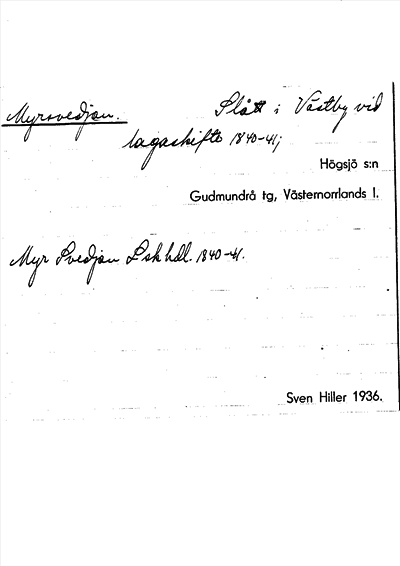 Myrsvedjan. Slått i Västby vid
lagaskifte 1840-41;
Högsjö s:n
Gudmundrå tg, Västernorrlands l.
Myr Svedjan L sk hdl. 1840-41.
Sven Hiller 1936.